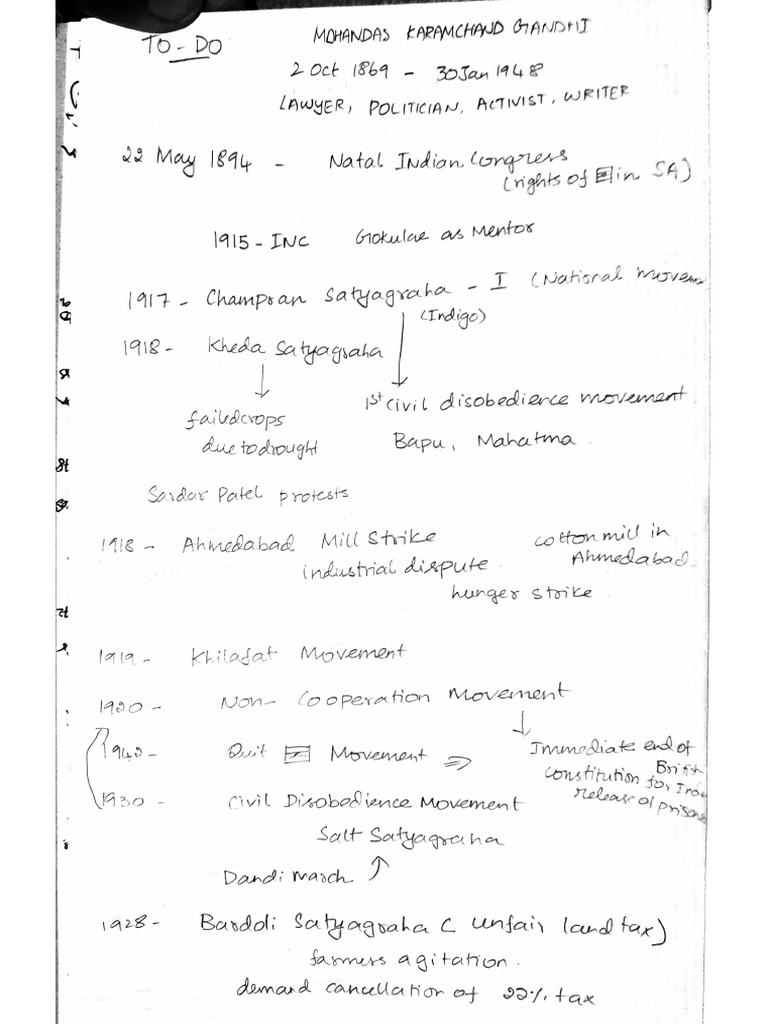 TO-DO
MOHANDAS KARAMCHAND GANDHI
2 Oct 1869 - 30 Jan 1948
LAWYER, POLITICIAN, ACTIVIST, WRITER
22 May 1894 - Natal Indian Congress
(rights of in SA)
1915 - INC Gokulae as Mentor
1917 - Champran Satyagraha - I (National movem
(Indigo)
1918 - Kheda Satyagraha
1st Civil disobedience movement
failed crops
due to drought
Bapu, Mahatma.
Sardar Patel protests
1918 - Ahmedabad Mill Strike
cotton mill in
Ahmedabad
industrial dispute.
hunger strike.
1919 - Khilafat Movement
1920 - Non-Cooperation Movement
1942 - Quit Movement ⇒
Immediate end of
Briti
constitution for Ind
release of prison
1930 - Civil Disobedience Movement
Salt Satyagraha
Dandi March
1928 - Bardoli Satyagraha ( unfair land tax)
farmers agitation.
demand cancellation of 22% tax